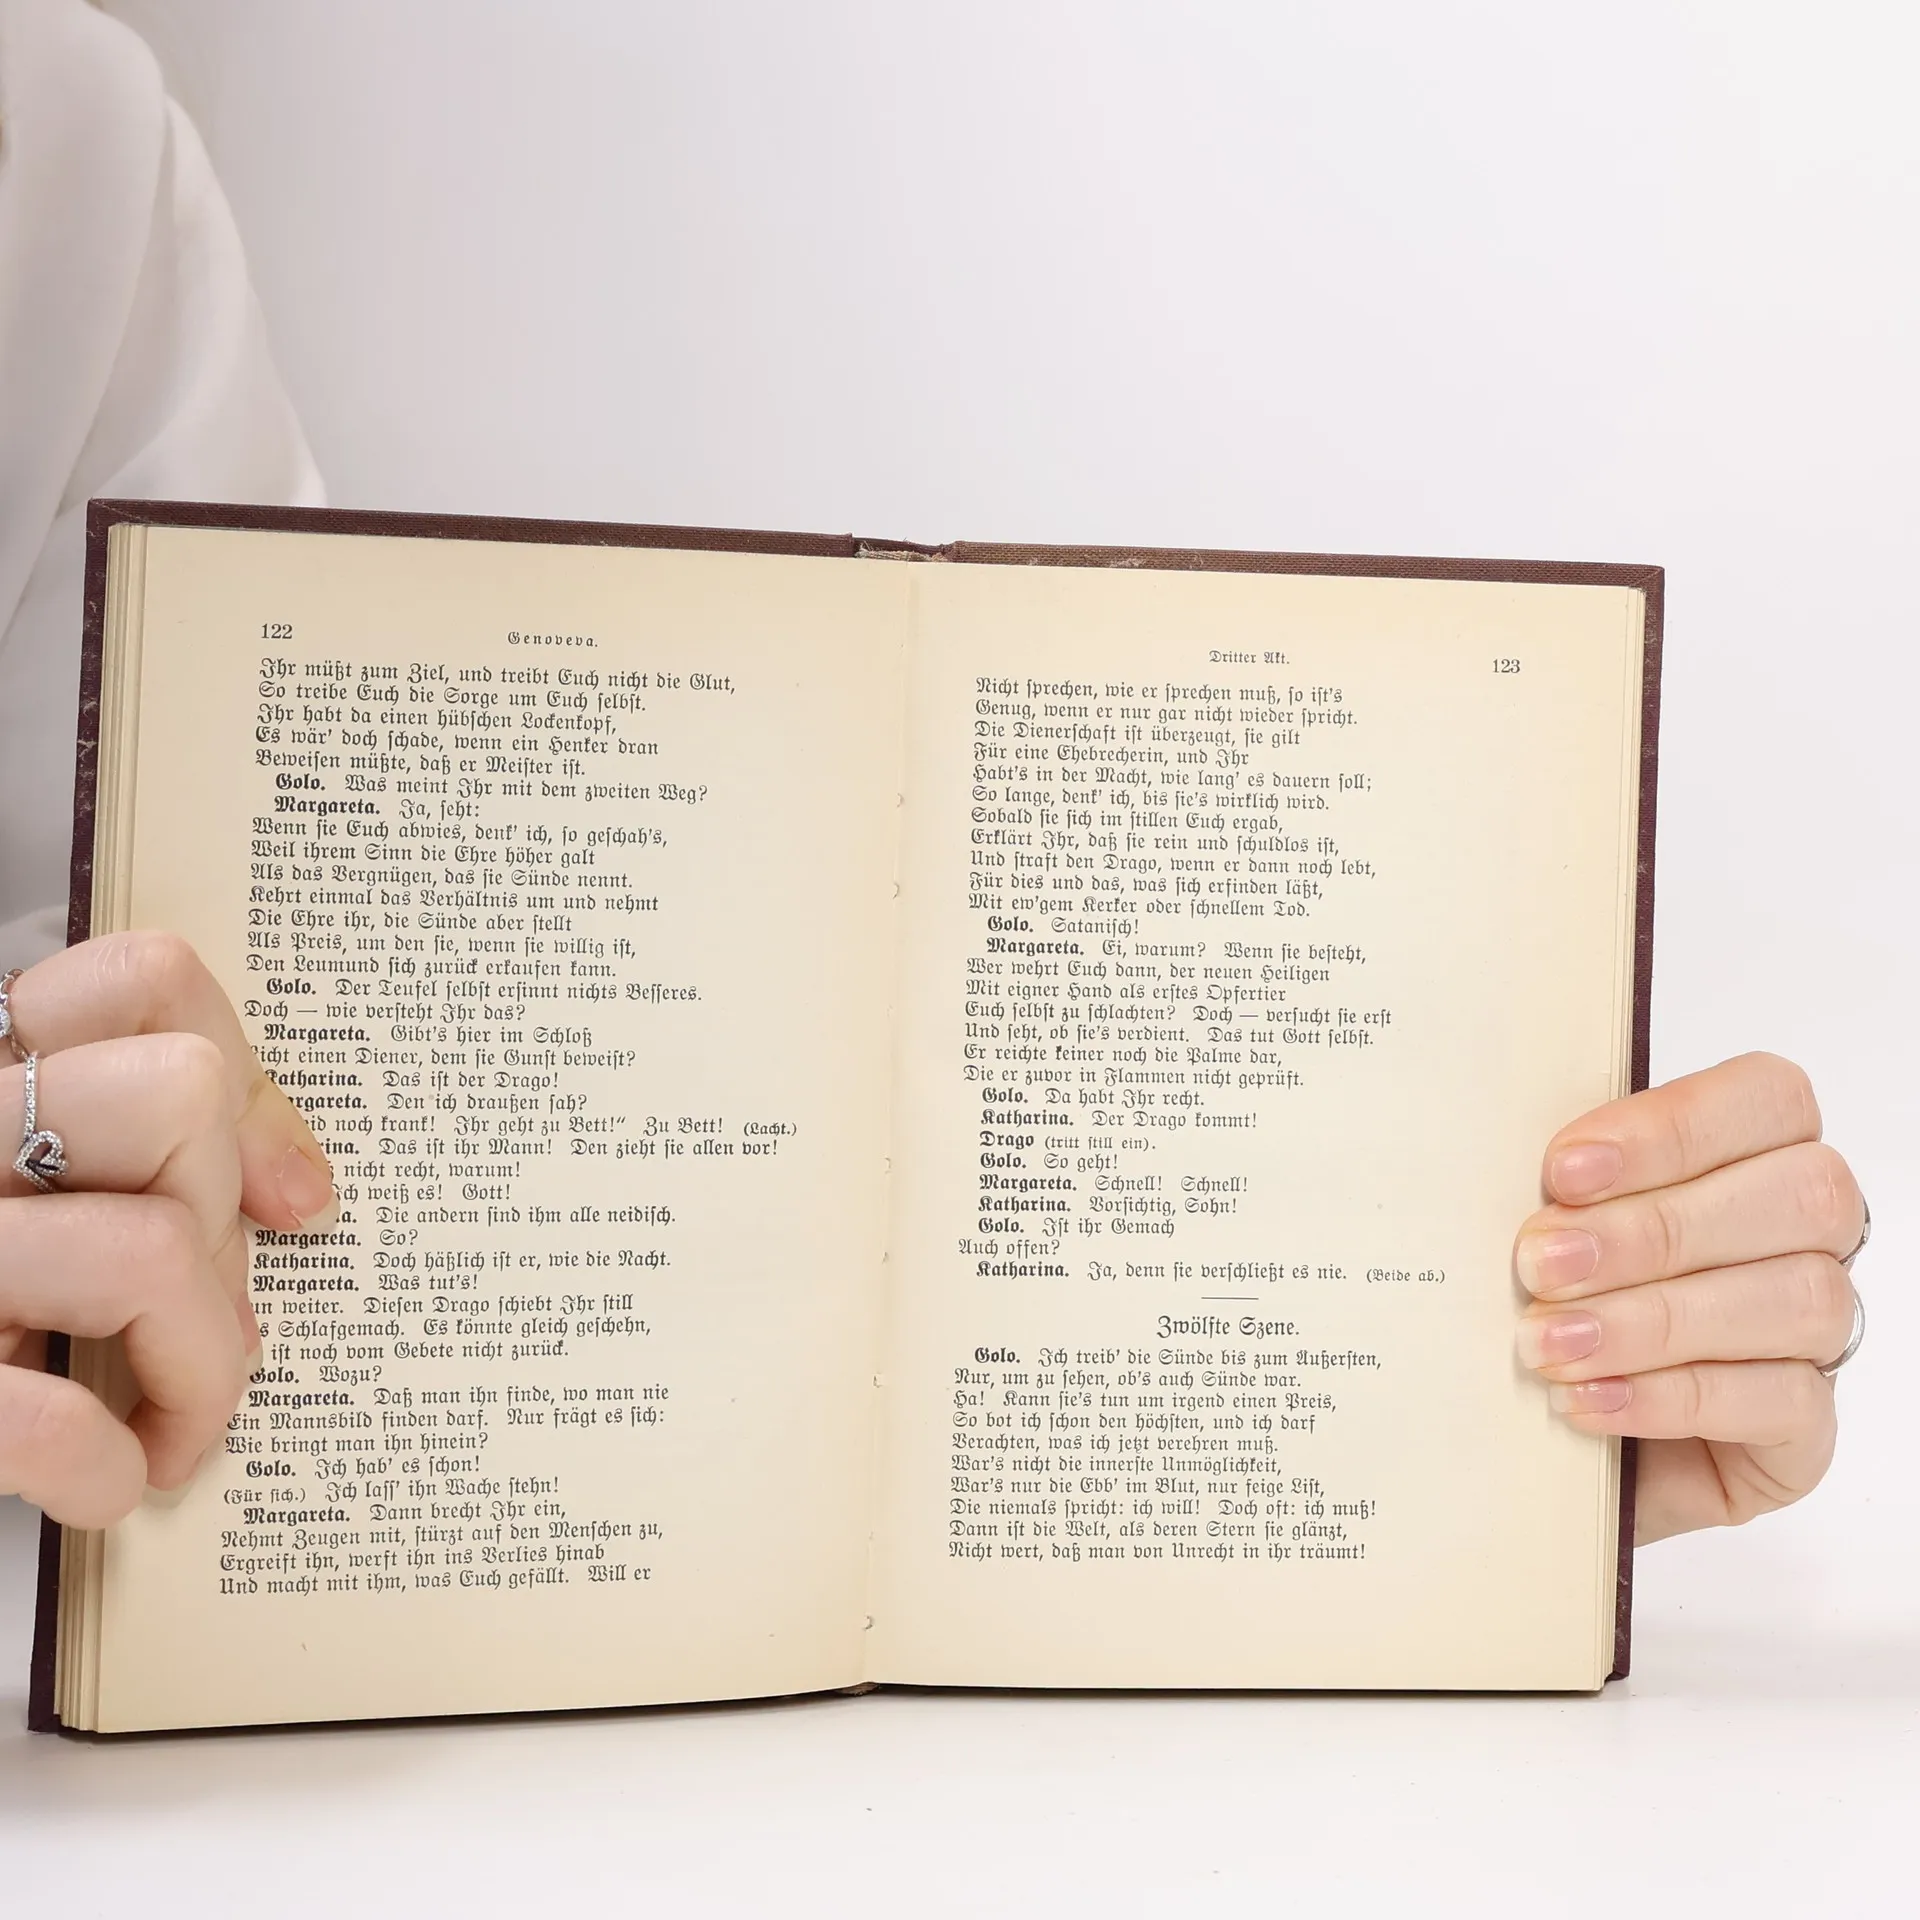 122
Genoveva.
Ihr müßt zum Ziel, und treibt Euch nicht die Glut,
So treibe Euch die Sorge um Euch selbst.
Ihr habt da einen hübschen Lockenkopf,
Es wär' doch schade, wenn ein Henker dran
Beweisen müßte, daß er Meister ist.
Golo. Was meint Ihr mit dem zweiten Weg?
Margareta. Ja, seht:
Wenn sie Euch abwies, denk' ich, so geschah's,
Weil ihrem Sinn die Ehre höher galt
Als das Vergnügen, das sie Sünde nennt.
Kehrt einmal das Verhältnis um und nehmt
Die Ehre ihr, die Sünde aber stellt
Als Preis, um den sie, wenn sie willig ist,
Den Leumund sich zurück erkaufen kann.
Golo. Der Teufel selbst ersinnt nichts Besseres.
Doch — wie versteht Ihr das?
Margareta. Gibt's hier im Schloß
einen Diener, dem sie Gunst beweist?
Katharina. Das ist der Drago!
Den ich draußen sah?
noch krank! Ihr geht zu Bett!“ Zu Bett! (Lacht.)
Das ist ihr Mann! Den zieht sie allen vor!
nicht recht, warum!
weiß es! Gott!
Die andern sind ihm alle neidisch.
Margareta. So?
Katharina. Doch häßlich ist er, wie die Nacht.
Margareta. Was tut's!
weiter. Diesen Drago schiebt Ihr still
Schlafgemach. Es könnte gleich geschehn,
ist noch vom Gebete nicht zurück.
Golo. Wozu?
Margareta. Daß man ihn finde, wo man nie
Ein Mannsbild finden darf. Nur frägt es sich:
Wie bringt man ihn hinein?
Golo. Ich hab' es schon!
(Für sich.) Ich lass' ihn Wache stehn!
Margareta. Dann brecht Ihr ein,
Nehmt Zeugen mit, stürzt auf den Menschen zu,
Ergreift ihn, werft ihn ins Verlies hinab
Und macht mit ihm, was Euch gefällt. Will er
Dritter Akt.
123
Nicht sprechen, wie er sprechen muß, so ist's
Genug, wenn er nur gar nicht wieder spricht.
Die Dienerschaft ist überzeugt, sie gilt
Für eine Ehebrecherin, und Ihr
Habt's in der Macht, wie lang' es dauern soll;
So lange, denk' ich, bis sie's wirklich wird.
Sobald sie sich im stillen Euch ergab,
Erklärt Ihr, daß sie rein und schuldlos ist,
Und straft den Drago, wenn er dann noch lebt,
Für dies und das, was sich erfinden läßt,
Mit ew'gem Kerker oder schnellem Tod.
Golo. Satanisch!
Margareta. Ei, warum? Wenn sie besteht,
Wer wehrt Euch dann, der neuen Heiligen
Mit eigner Hand als erstes Opfertier
Euch selbst zu schlachten? Doch — versucht sie erst
Und seht, ob sie's verdient. Das tut Gott selbst.
Er reichte keiner noch die Palme dar,
Die er zuvor in Flammen nicht geprüft.
Golo. Da habt Ihr recht.
Katharina. Der Drago kommt!
Drago (tritt still ein).
Golo. So geht!
Margareta. Schnell! Schnell!
Katharina. Vorsichtig, Sohn!
Golo. Ist ihr Gemach
Auch offen?
Katharina. Ja, denn sie verschließt es nie. (Beide ab.)
Zwölfte Szene.
Golo. Ich treib' die Sünde bis zum Äußersten,
Nur, um zu sehen, ob's auch Sünde war.
Ha! Kann sie's tun um irgend einen Preis,
So bot ich schon den höchsten, und ich darf
Verachten, was ich jetzt verehren muß.
War's nicht die innerste Unmöglichkeit,
War's nur die Ebb' im Blut, nur feige List,
Die niemals spricht: ich will! Doch oft: ich muß!
Dann ist die Welt, als deren Stern sie glänzt,
Nicht wert, daß man von Unrecht in ihr träumt!